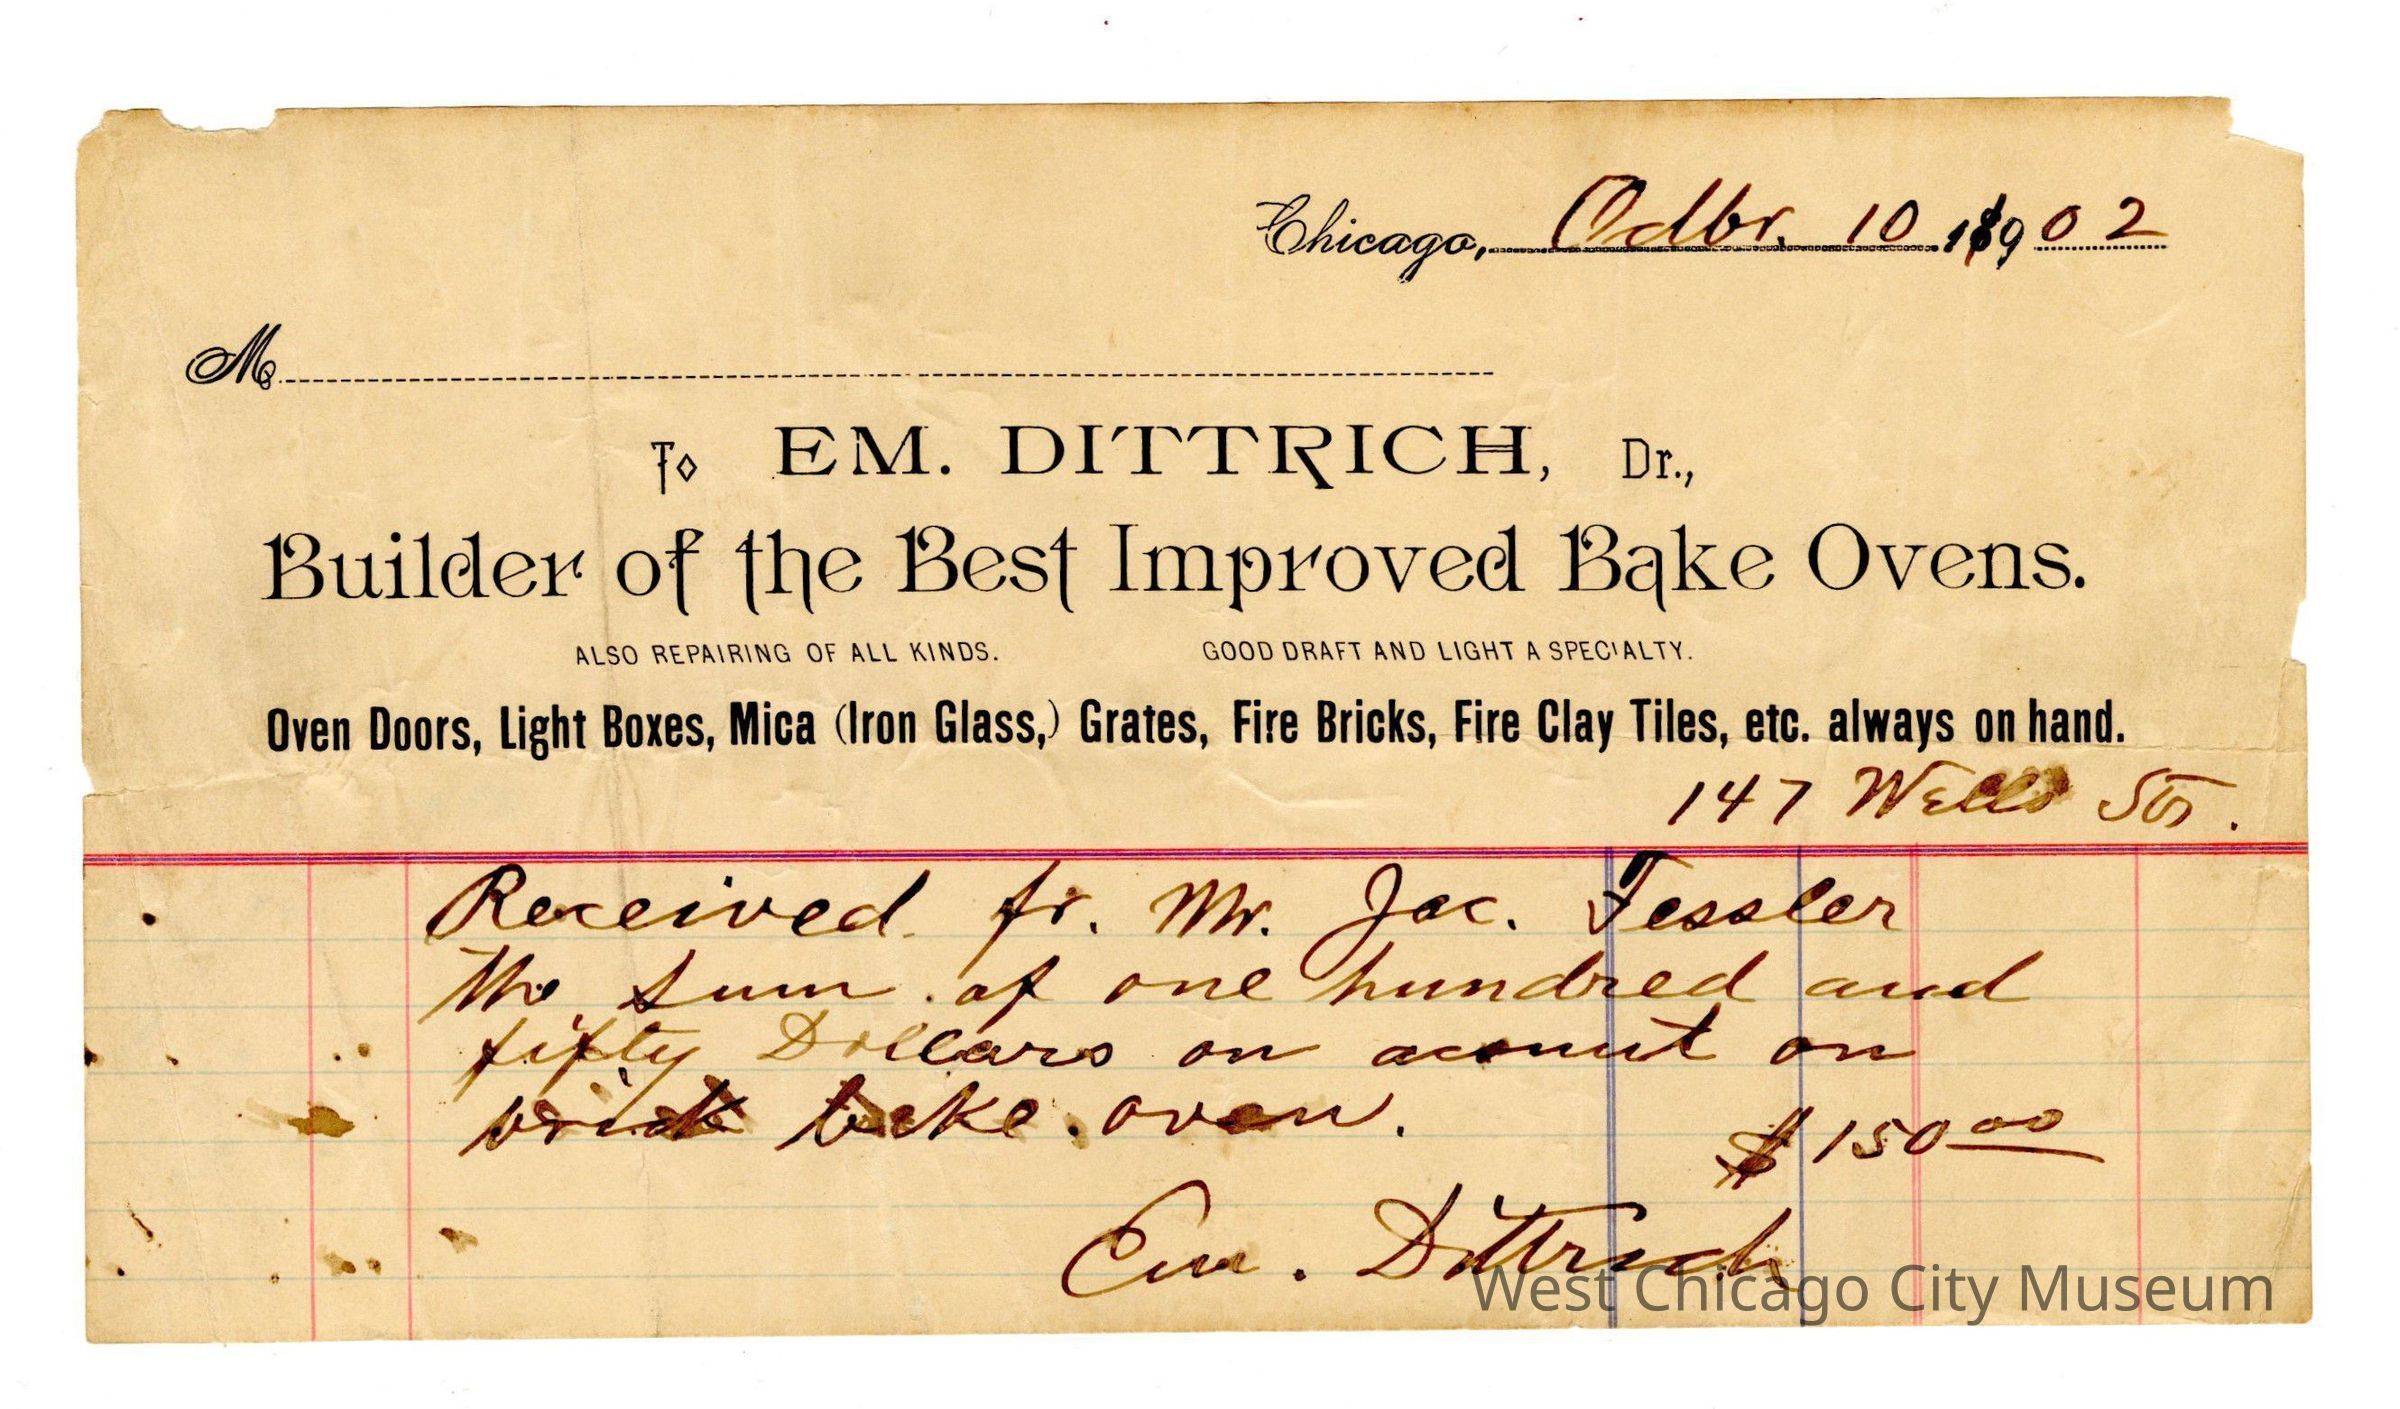 Chicago, Octbr. 10 1902
M
To EM. DITTRICH, Dr.,
Builder of the Best Improved Bake Ovens.
ALSO REPAIRING OF ALL KINDS. GOOD DRAFT AND LIGHT A SPECIALTY.
Oven Doors, Light Boxes, Mica (Iron Glass,) Grates, Fire Bricks, Fire Clay Tiles, etc. always on hand.
147 Wells Str.
Received fr. Mr. Jac. Tessler
the sum of one hundred and
fifty Dollars on acount on
brick bake oven.
$ 150 00
Em. Dittrich
West Chicago City Museum